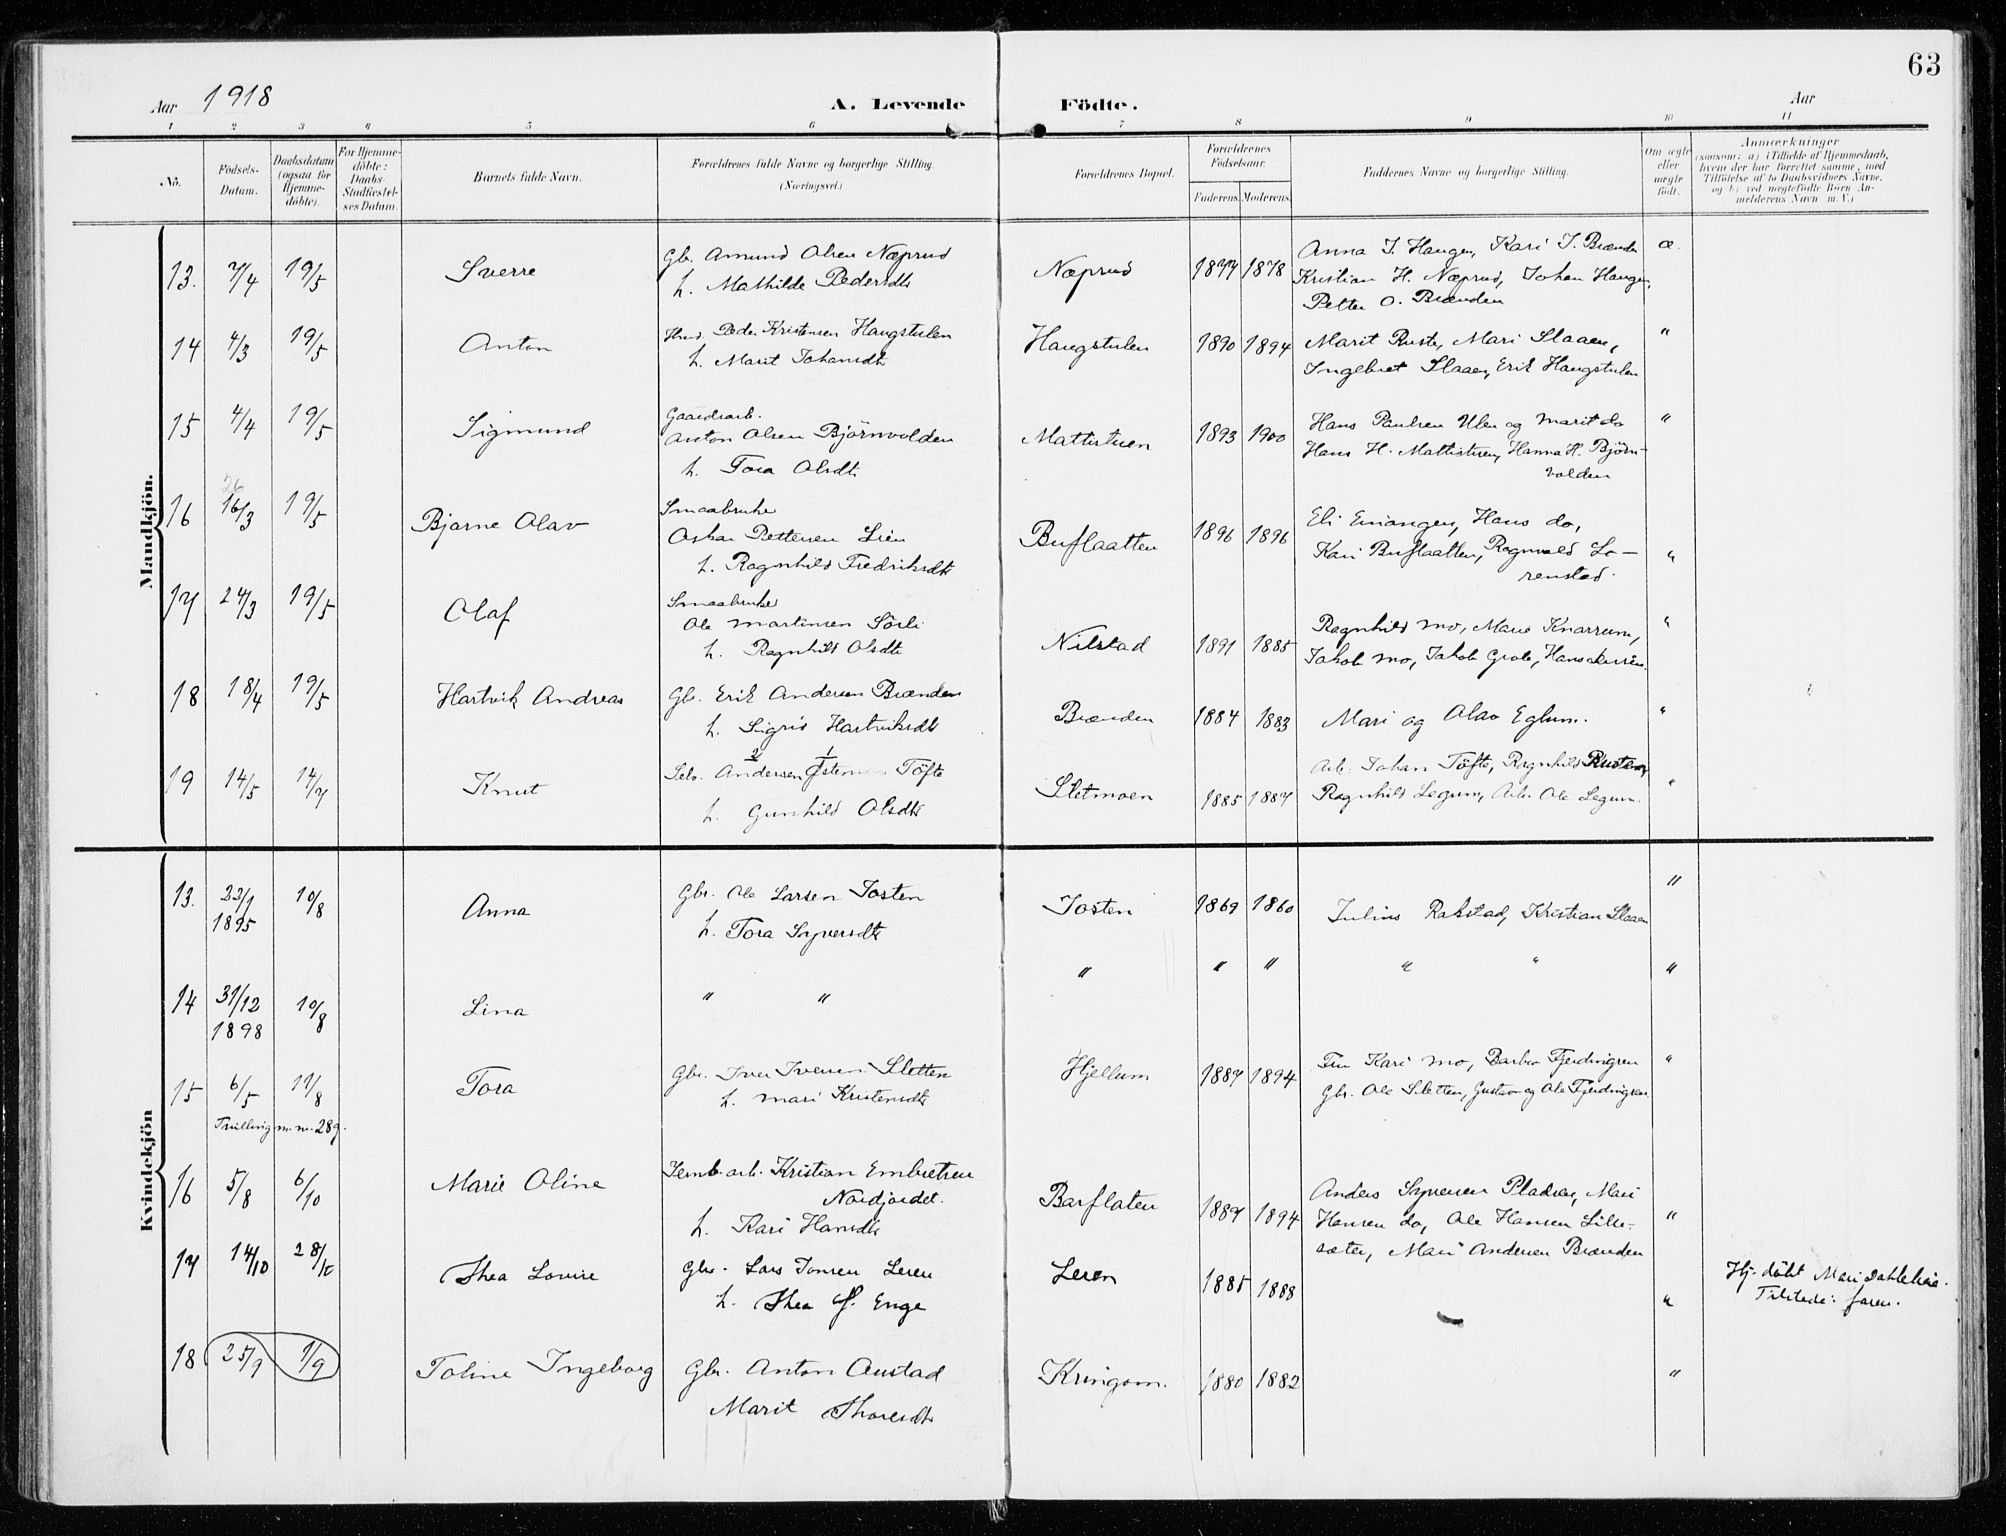 63
Aar 1918
A. Levende Födte.
Aar
1 2 3 4 5 6 7 8 9 10 11
No.
Födsels-Datum.
Daabsdatum (ogsaa for Hjemme-döbte).
For Hjemme-döbte: Daabs-Stadfestel-ses Datum.
Barnets fulde Navn.
Forældrenes fulde Navne og borgerlige Stilling. (Næringsvei.)
Forældrenes Bopæl.
Forældrenes Födselsaar.
Faderens. Moderens.
Faddernes Navne og borgerlige Stilling.
Om ægte eller uægte født.
Anmærkninger
(saasom: a) i Tilfælde af Hjemmedaab,
hvem der har forrettet samme, med
Tilföielse af to Daabsvidners Navne,
og b) ved uægtefödte Börn An-
melderens Navn m.V.)
Mandkjön.
13. 7/4 19/5 Sverre Gb. Amund Olsen Næprud
h. Mathilde Pedersdt.
Næprud 1877 1878 Anna J. Haugen, Kari J. Brænden æ.
Kristian H. Næprud, Johan Haugen,
Petter O. Brænden
14 4/3 19/5 Anton Hmd. Peder Kristensen Haugstulen
h. Marit Johansdt.
Haugstulen 1890 1894 Marit Ruste, Mari Slaaen, "
Ingebret Slaaen, Erik Haugstulen
15 4/4 19/5 Sigmund Gaardarb.
Anton Olsen Björnvolden
h. Tora Olsdt.
Mattistuen 1893 1900 Hans Paulsen Ulen og Marit do "
Hans H. Mattistuen, Hanna H. Björn-
volden
26
16 16/3 19/5 Bjarne Olav Smaabruker
Oskar Pettersen Lien
h. Ragnhild Fredriksdt.
Buflaatten 1896 1896 Eli Eriangen, Hans do,
Kari Buflaatten, Ragnvald Lo- "
renstad.
17 24/3 19/5 Olaf Smaabruker
Ole Martinsen Sörli
h. Ragnhild Olsdt.
Nilstad 1891 1885 Ragnhild Mo, Marie Knarrum, "
Jakob Mo, Jakob Grote,
18 18/4 19/5 Hartvik Andreas Gb. Erik Andersen Brænden
h. Sigrid Hartviksdt.
Brænden 1884 1883 Mari og Olav Eglum. "
2 1
19 14/5 14/7 Knut Selv. Andersen Östensen Töfte
h. Gunhild Olsdt.
Sletmoen 1885 1887 Arb. Johan Töfte, Ragnhild Rusten, "
Ragnhild Legum, Arb. Ole Legum.
Kvindekjön
13. 22/1 1895 10/8 Anna Gbr. Ole Larsen Josten
h. Tora Syversdt.
Josten 1869 1860 Julius Rakstad, Kristian Slaaen "
14 31/12 1898 10/8 Lina " "
" " " " " "
15 6/5 11/8 Tora Gbr. Iver Iversen Sletten
h. Mari Kristensdt.
Tvilling m. nr. 289.
Hjellum 1887 1894 Fru Kari Mo, Barbro Fjerdingren "
Gbr. Ole Sletten, Gustav og Ole Fjerdingren
16 5/8 6/10 Marie Oline Jernb. arb. Kristian Embretsen
Nordjordet.
h. Kari Hansdt.
Barflaten 1887 1894 Anders Syversen Pladsen, Mari
Hansen do, Ole Hansen Lille- "
sæter, Mari Andersen Brænden
17 14/10 28/10 Thea Lovise Gbr. Lars Jonsen Leren
h. Thea J. Enge
Leren 1885 1888 "
Hj. döbt Mari Dahlehaie.
Tilstede: faren.
18 25/9 1/9 Toline Ingeborg Gbr. Anton Austad
Marit Thoresdt.
Kringom. 1880 1882 "